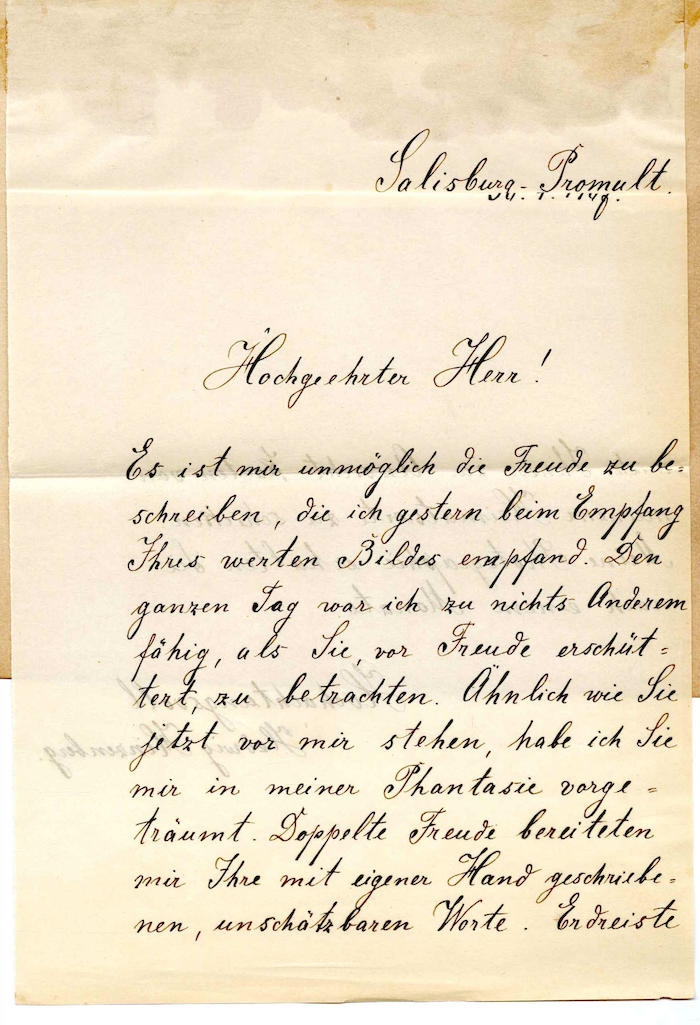 Salisburg-Promult.
Hochgeehrter Herr!
Es ist mir unmöglich die Freude zu be-
schreiben, die ich gestern beim Empfang
Ihres werten Bildes empfand. Den
ganzen Tag war ich zu nichts Anderem
fähig, als Sie, vor Freude erschüt=
tert, zu betrachten. Ähnlich wie Sie
jetzt vor mir stehen, habe ich Sie
mir in meiner Phantasie vorge=
träumt. Doppelte Freude bereiteten
mir Ihre mit eigener Hand geschriebe=
nen, unschätzbaren Worte. Erdreiste